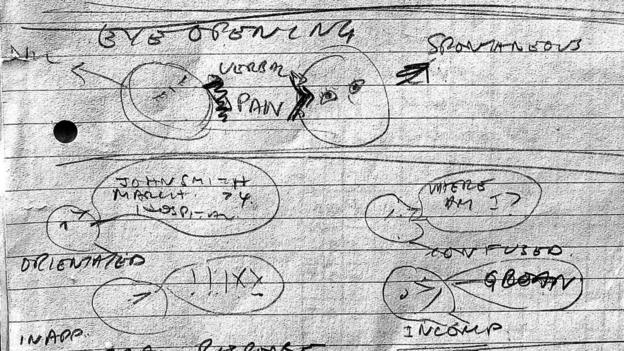 EYE OPENING
NIL VERBAL SPONTANEOUS
PAIN
JOHN SMITH
MARCH 24
HOSPITAL
WHERE
AM I?
ORIENTATED CONFUSED
!!!XX GROAN
INAPP. INCOMP